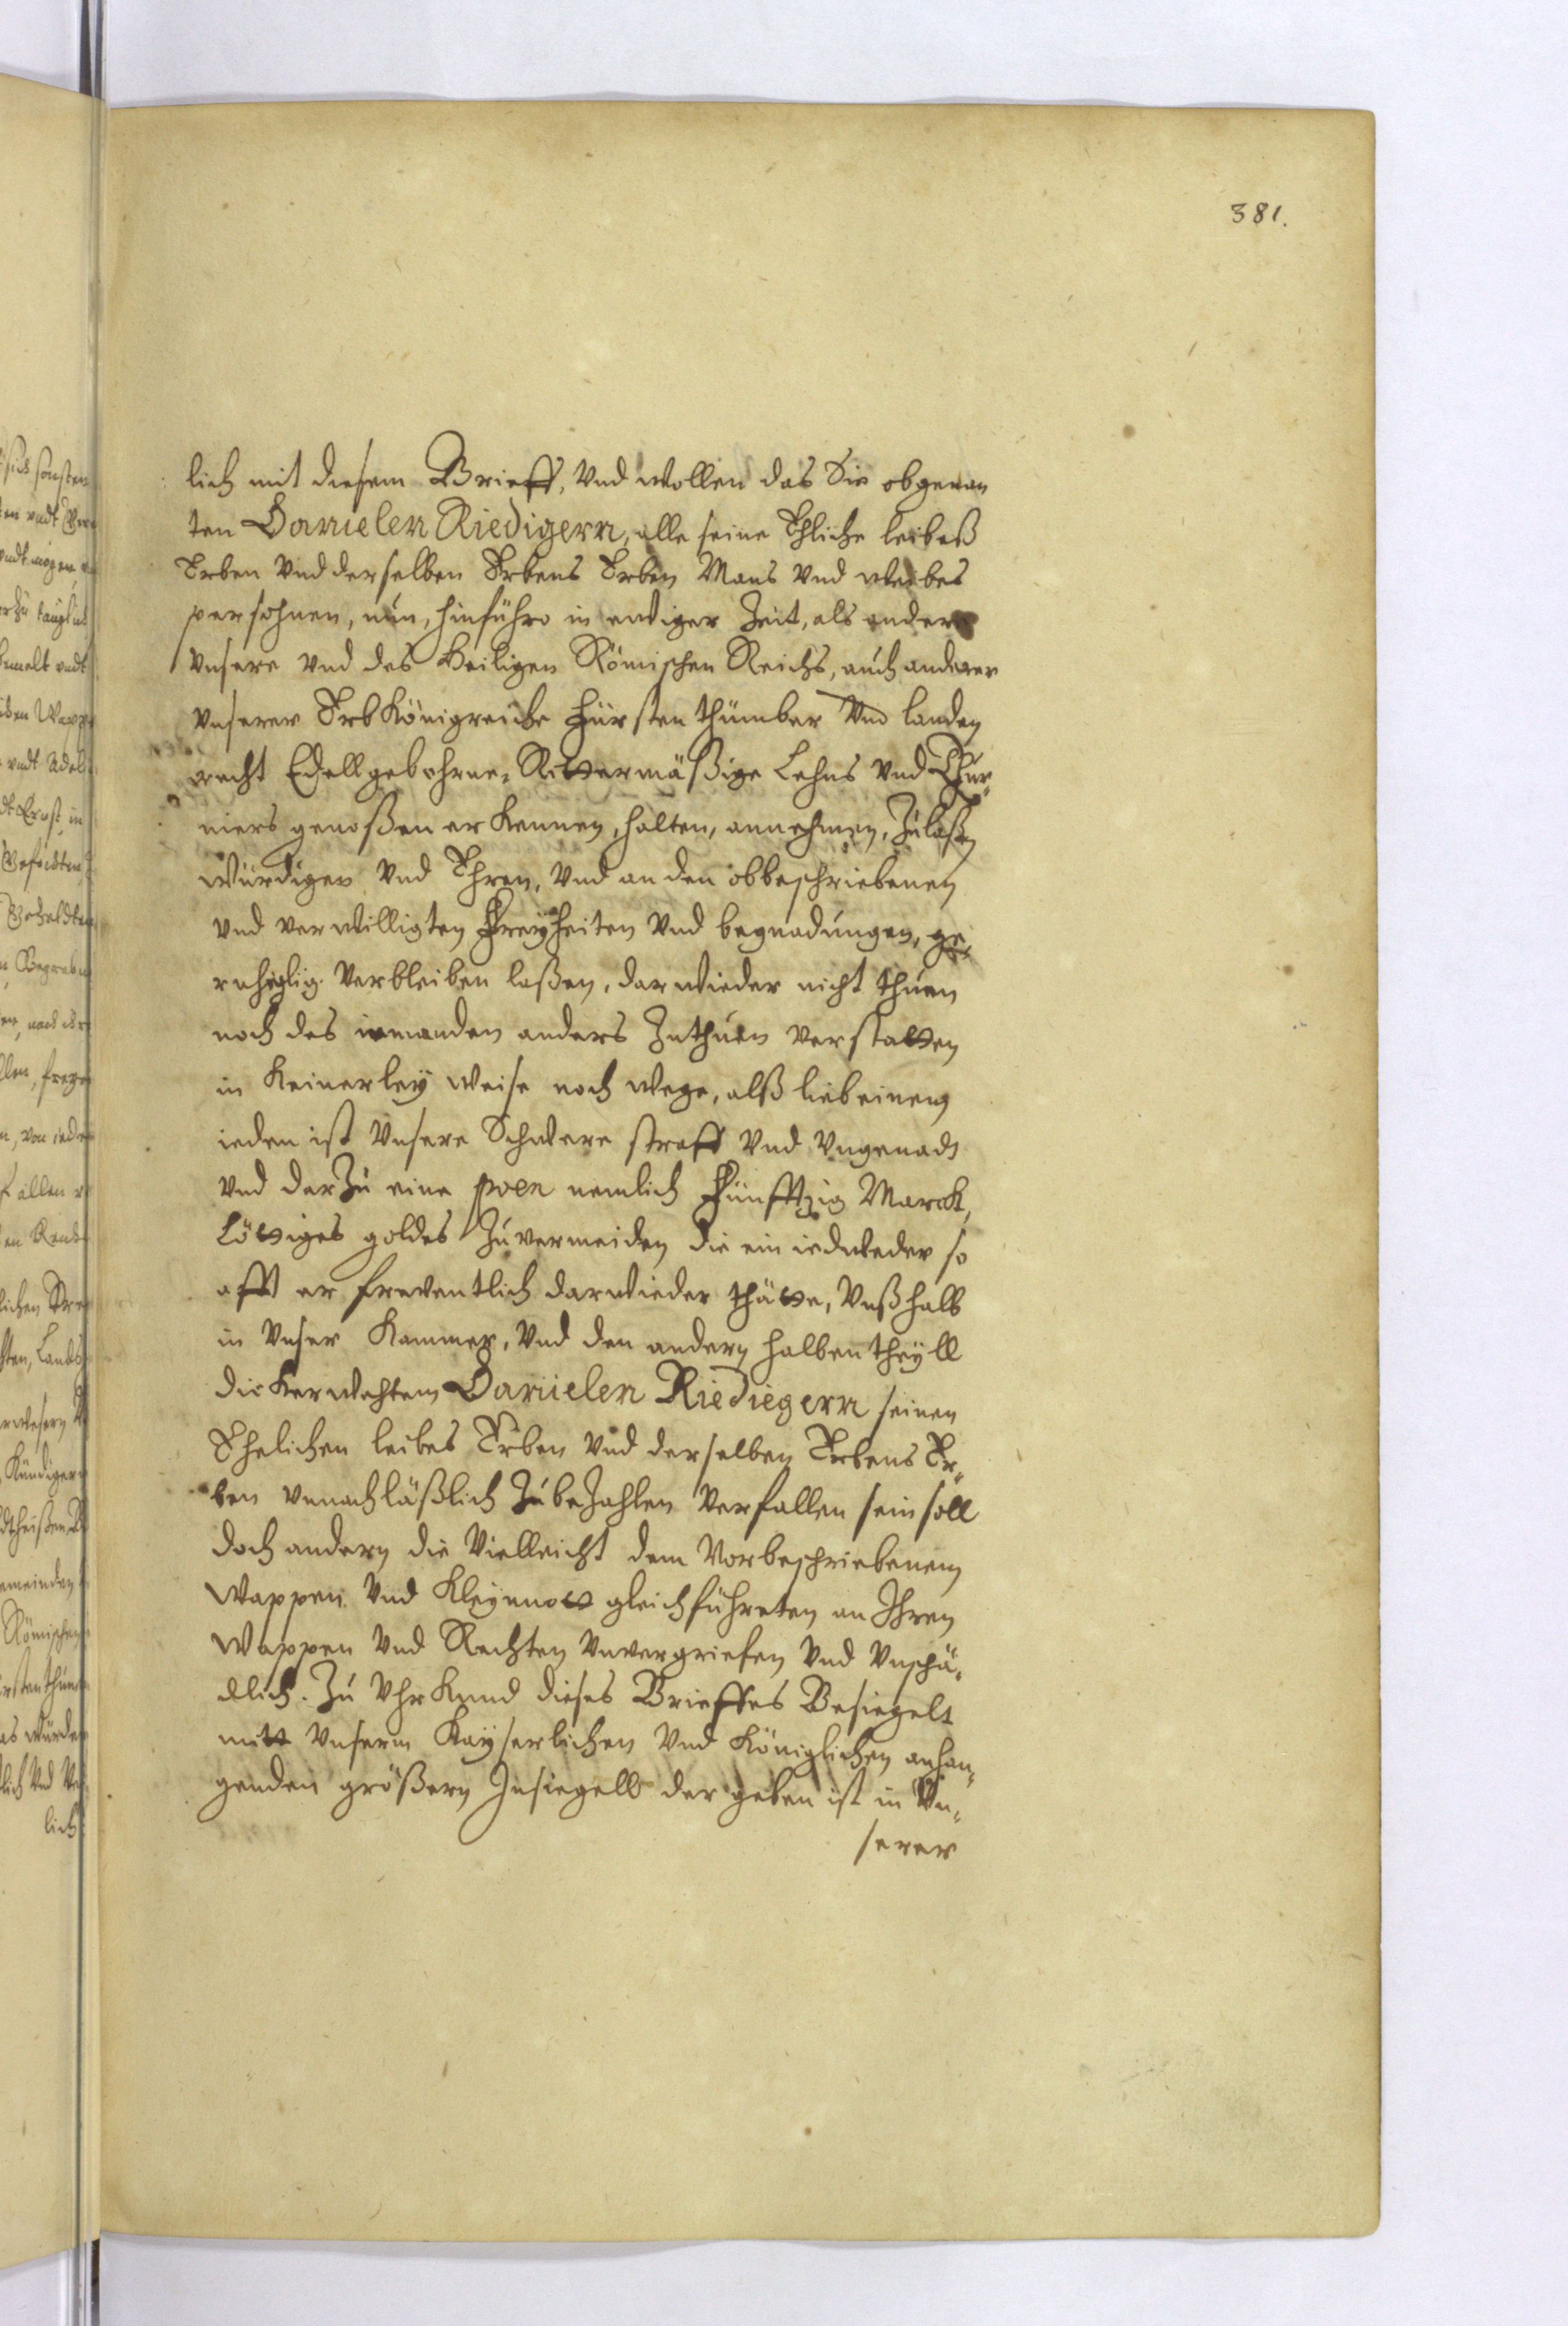 381.
lich mit diesem Brieff, Vnd wollen das Sie obgenan
ten Danielen Riedigern, alle seine Ehliche leibeß
Erben Vnd derselben Erbens Erben Mans Vnd weibes
persohnen, nun, hinführo in ewiger Zeit, als andere
Vnsere Vnd des Heiligen Römischen Reichs, auch anderer
Vnserer ErbKönigreiche Fürstenthümber Vnd landen
recht Edellgebohrne, Rittermäßige Lehns Vnd Thur¬
niers genoßen erkennen, halten, annehmen, Zulaßen
Würdigen Vnd Ehren, Vnd an den obbeschriebenen
Vnd verwilligten Freyheiten Vnd begnadungen, ge¬
ruhiglig Verbleiben laßen, darwieder nicht thuen
noch des iemanden anders Zuthuen verstatten
in Keinerley weise noch wege, alß lieb einem
ieden ist Vnsere Schwere straff Vnd Vngenadt
Vnd darZu eine poen nemlich Fünfftzig Marck,
Löttiges goldes Zuvermeiden die ein iedweder so
offt er freventlich darwieder thätte, Vnß halb
in Vnser Kammer, Vnd den andern halben theyll
dickerwehtem Danielen Riediegern seinen
Ehelichen leibes Erben Vnd derselben Erbens Er¬
ben vnnachläßlich ZubeZahlen Verfallen sein soll
doch andern die Vielleicht dem Vorbeschriebenem
Wappen Vnd Kleynott gleich führeten an Ihren
Wappen Vnd Rechten Vnvergriefen Vnd Vnschä¬
dlich. Zu VhrKund dieses Brieffes Besiegelt
mitt Vnserm Kayserlichen Vnd Königlichen anhan¬
genden größern Insiegell der geben ist in Vn¬
serer